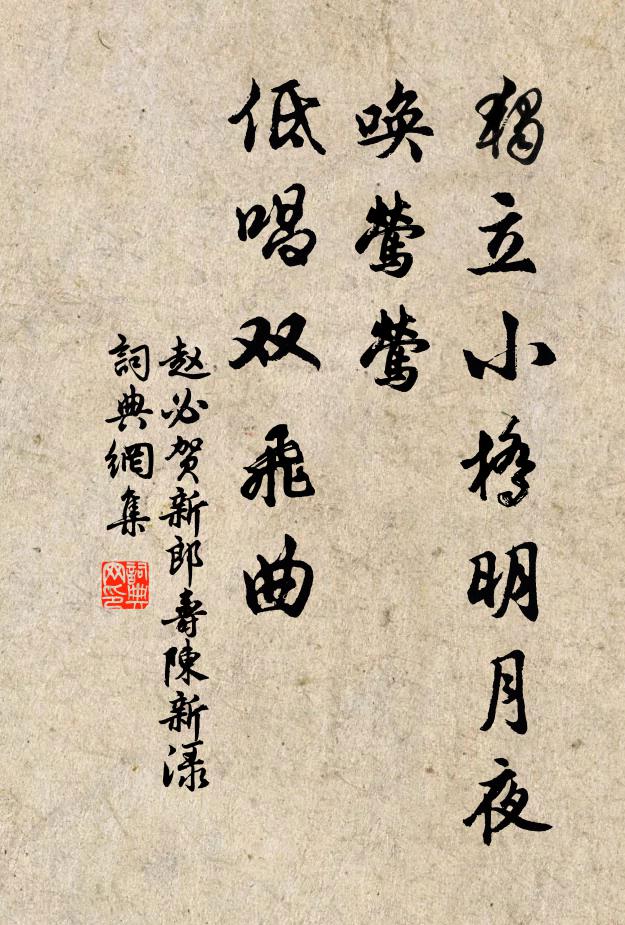 獨立小橋明月夜
喚鶯鶯
低唱双飛曲
赵必贺新郎壽陳新渌
詞典網集
詞典网印